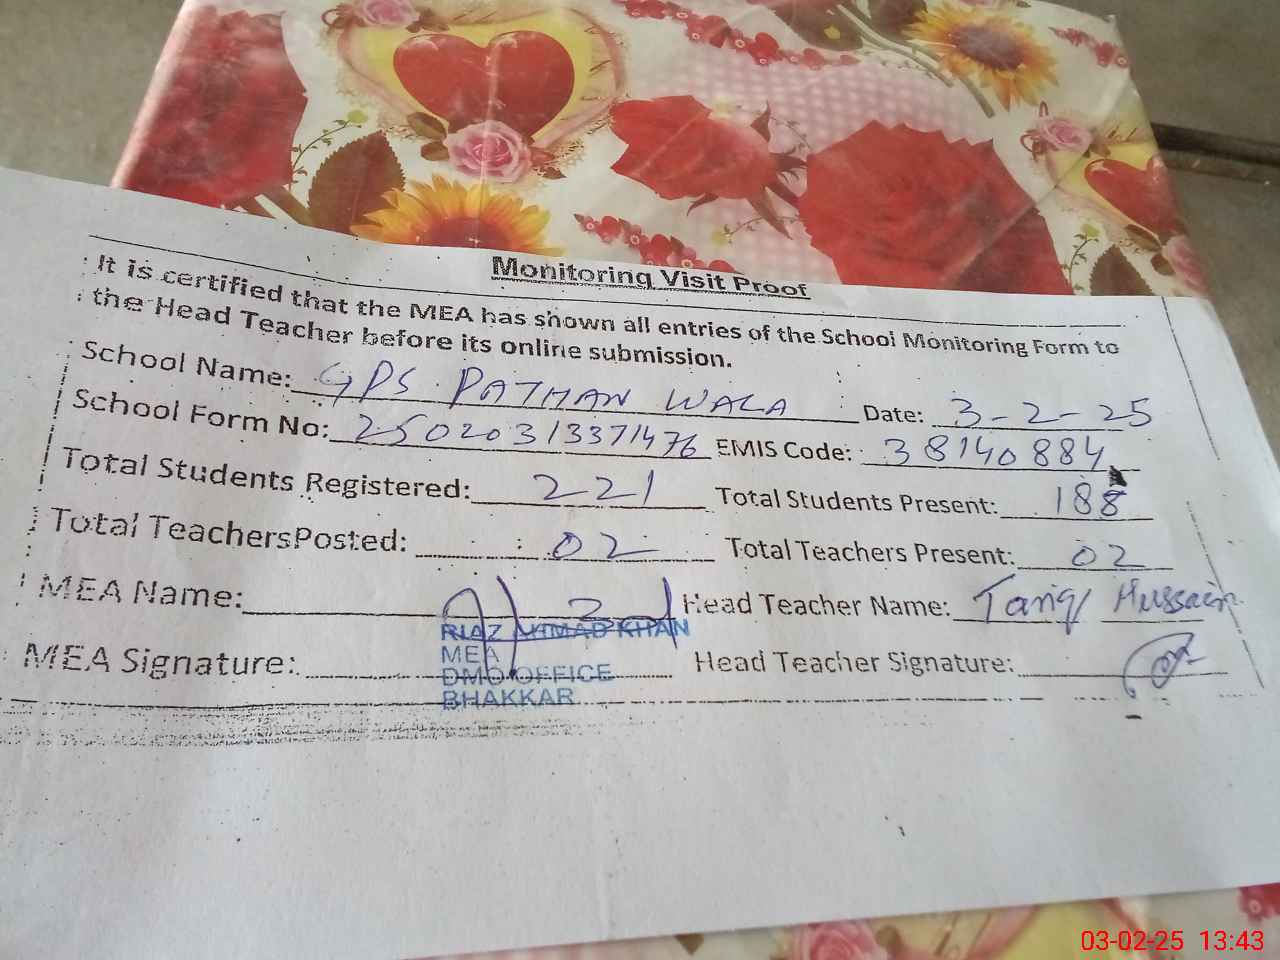 Monitoring Visit Proof
It is certified that the MEA has shown all entries of the School Monitoring Form to
the Head Teacher before its online submission.
School Name: GPS PATHAN WALA Date: 3-2-25
School Form No: 25020313371476 EMIS Code: 38140884
Total Students Registered: 221 Total Students Present: 188
Total Teachers Posted: 02 Total Teachers Present: 02
MEA Name: Head Teacher Name: Tariq Hussain
RIAZ AHMAD KHAN
MEA
MEA Signature: Head Teacher Signature:
DMO OFFICE
BHAKKAR
03-02-25 13:43